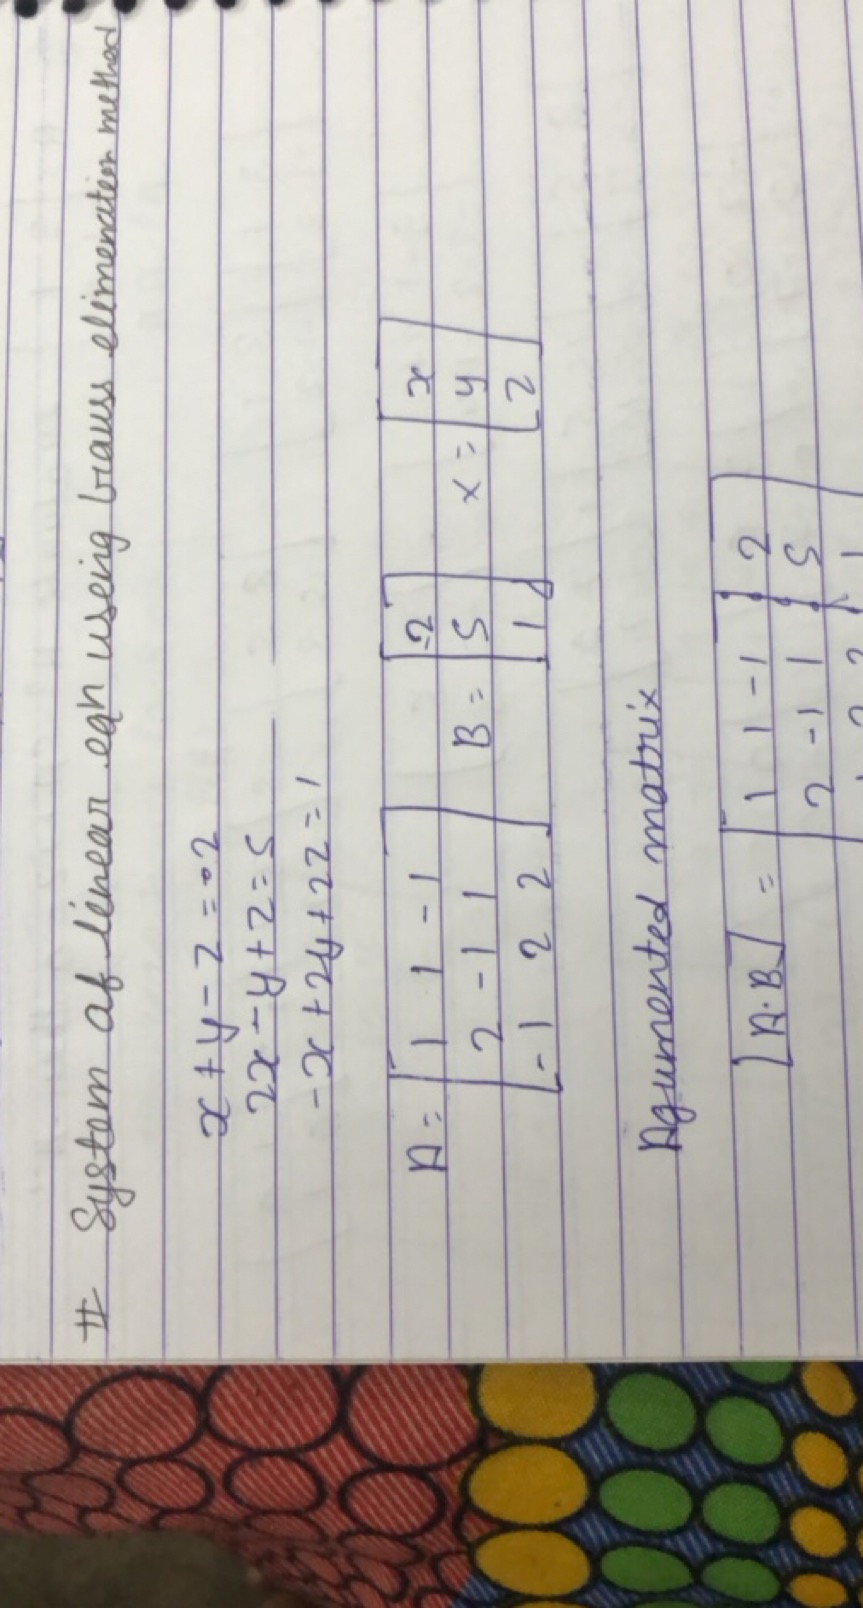 # System of linear eqn useing Gauss elimenation method
x + y - z = -2
2x - y + z = 5
-x + 2y + 2z = 1
A = [ 1 1 -1 B = [ -2 X = [ x
2 -1 1 5 y
-1 2 2 ] 1 ] z ]
Agumented matrix
[A·B] = [ 1 1 -1 : 2
2 -1 1 : 5